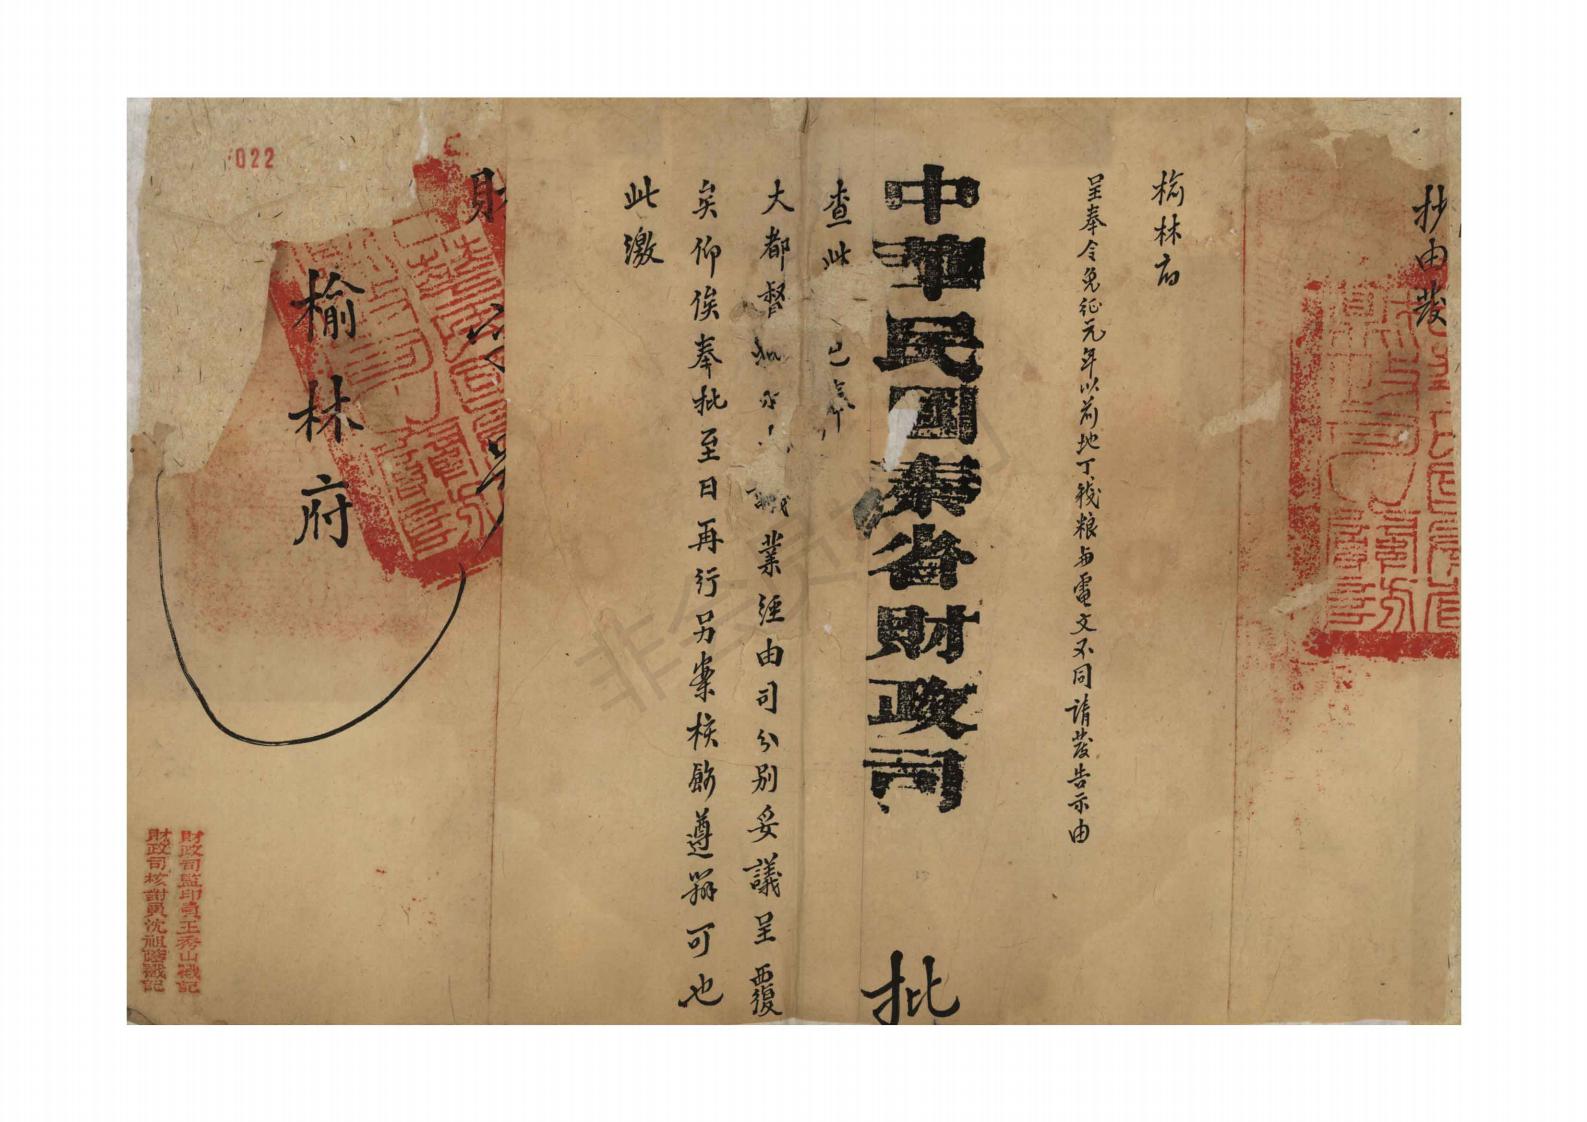 抄由發
榆林府
呈奉令免征元年以前地丁錢粮與電文不同請發告示由
中華民國秦省財政司
批
查此
已奉
大都督
業經由司分別妥議呈覆
矣仰俟奉批至日再行另案核飭遵辦可也
此繳
財
榆林府
022
財政司監印員王秀山戳記
財政司核對員沈祖蔭戳記
非会员水印